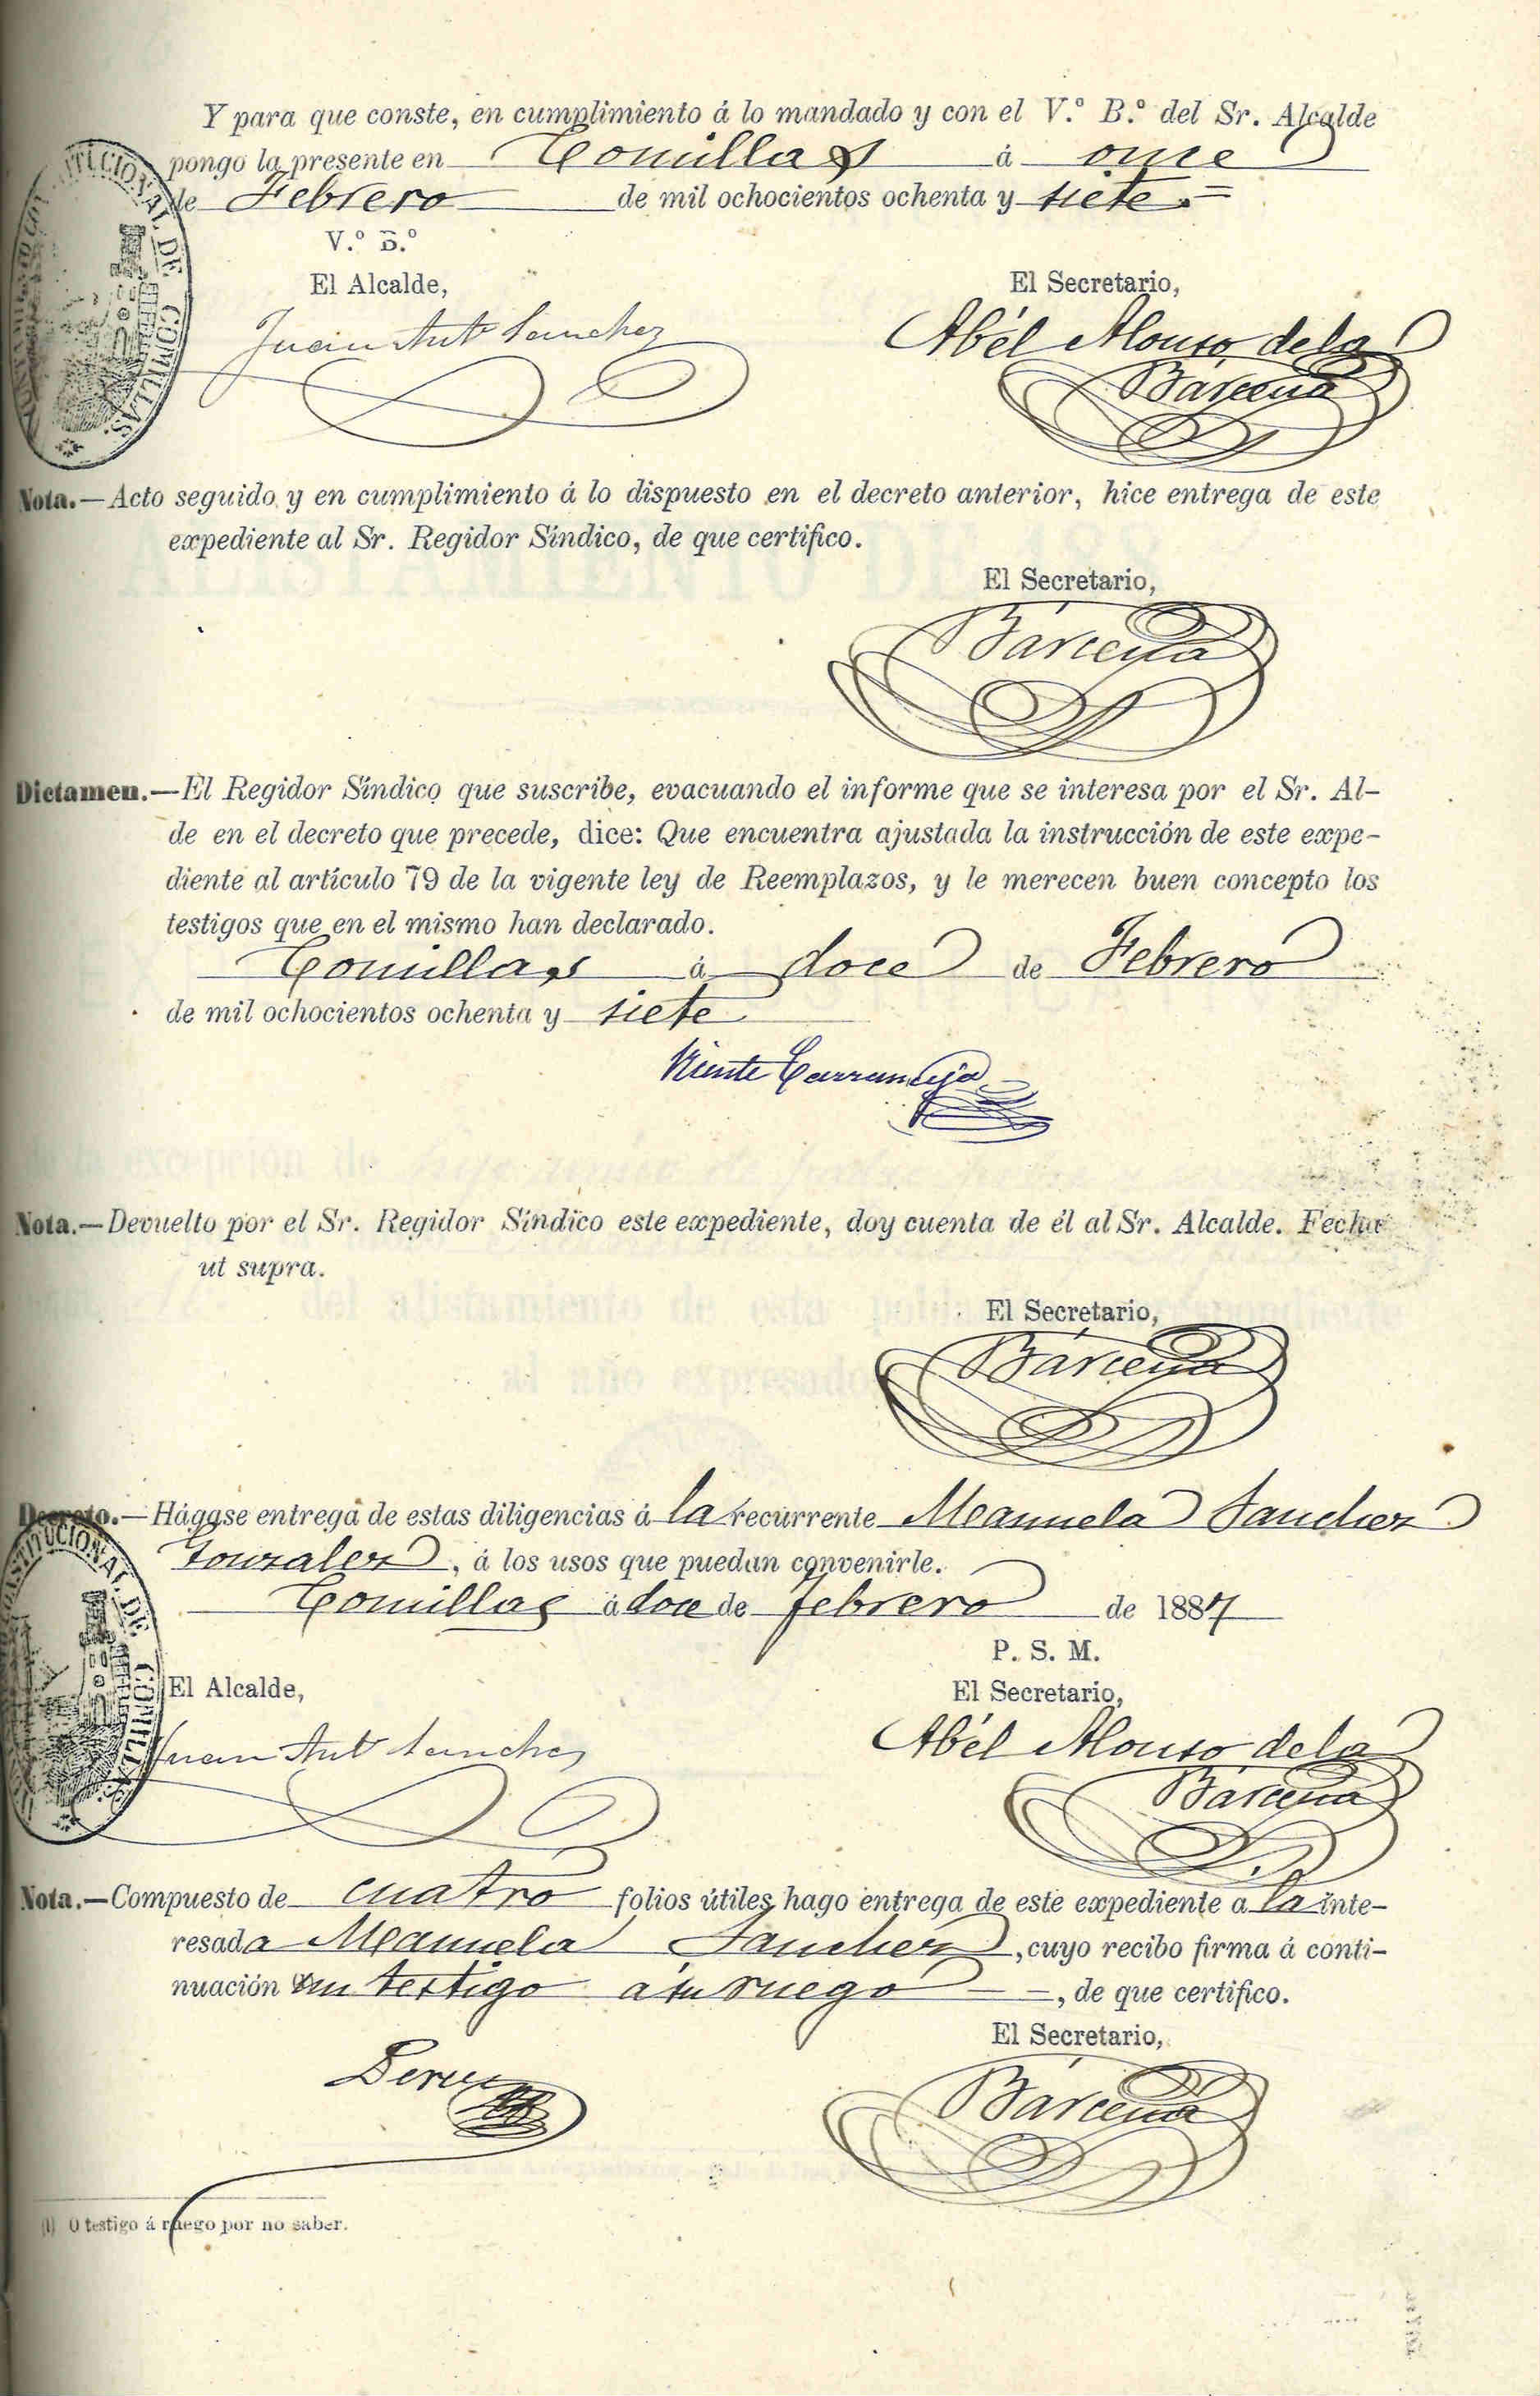 Y para que conste, en cumplimiento á lo mandado y con el V.º B.º del Sr. Alcalde
pongo la presente en Comillas á once
de Febrero de mil ochocientos ochenta y siete.=
V.º B.º
El Alcalde,
El Secretario,
Juan Ant Sanchez
Abél Alonso de la
Bárcena
CONSTITUCIONAL DE COMILLAS
Nota.—Acto seguido y en cumplimiento á lo dispuesto en el decreto anterior, hice entrega de este
expediente al Sr. Regidor Síndico, de que certifico.
El Secretario,
Bárcena
Dictamen.—El Regidor Síndico que suscribe, evacuando el informe que se interesa por el Sr. Al-
de en el decreto que precede, dice: Que encuentra ajustada la instrucción de este expe-
diente al artículo 79 de la vigente ley de Reemplazos, y le merecen buen concepto los
testigos que en el mismo han declarado.
Comillas á doce de Febrero
de mil ochocientos ochenta y siete
Nota.—Devuelto por el Sr. Regidor Síndico este expediente, doy cuenta de él al Sr. Alcalde. Fecha
ut supra.
El Secretario,
Bárcena
Decreto.—Hágase entrega de estas diligencias á la recurrente Manuela Sanchez
Gonzalez, á los usos que puedan convenirle.
Comillas á doce de febrero de 1887
P. S. M.
El Alcalde,
El Secretario,
Juan Ant Sanchez
Abél Alonso de la
Bárcena
CONSTITUCIONAL DE COMILLAS
Nota.—Compuesto de cuatro folios útiles hago entrega de este expediente a la inte-
resada Manuela Sanchez, cuyo recibo firma á conti-
nuación un testigo á su ruego = =, de que certifico.
El Secretario,
Bárcena
(1) O testigo á ruego por no saber.